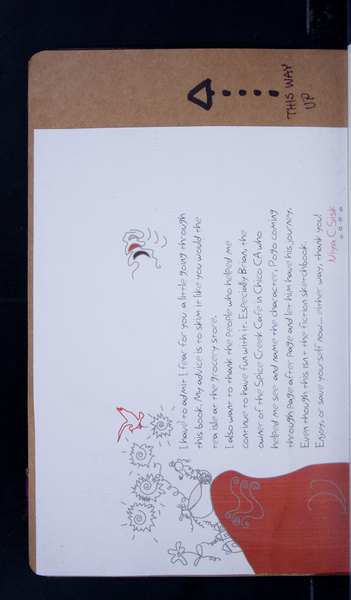 THIS WAY
UP
I have to admit I fear for you a little going through
this book. My advice is to skim it like you would the
tea isle at the grocery store.
I also want to thank the people who helped me
continue to have fun with it. Especially Brian, the
owner of the Spice Creek Cafe in Chico CA who
helped me see and name the character, Pogo coming
through page after page and let him have his journey.
Even though this isnt the fiction sketchbook.
Enjoy, or save yourself now... either way, thank you!
Niya C Sisk